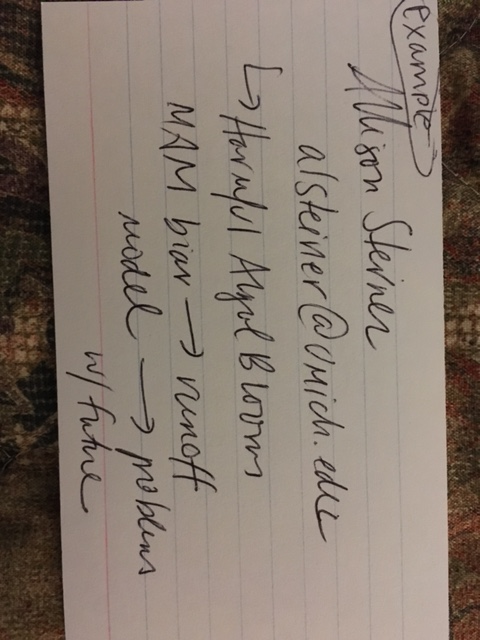 example
Allison Steiner
alsteiner@umich.edu
↳ Harmful Algal Blooms
MAM bias → runoff
model → problems
w/ future